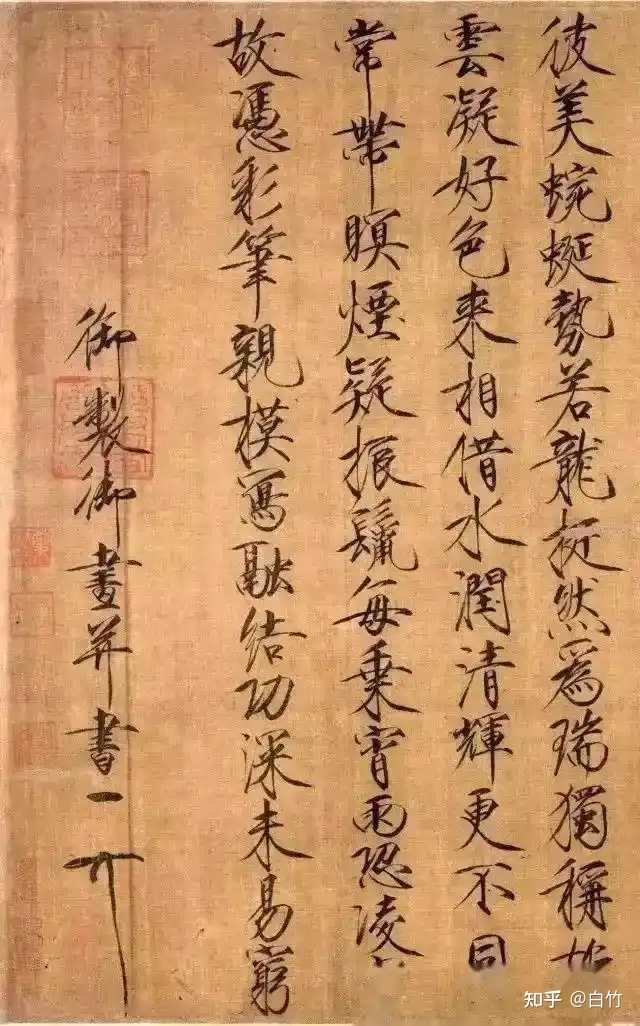 彼美蜿蜒勢若龍挺然爲瑞獨稱
雲凝好色來相借水潤清輝更不同
常帶暝煙疑振鬣每乗宵雨恐凌
故憑彩筆親模寫融結功深未易窮
御製御畫并書
知乎 @白竹